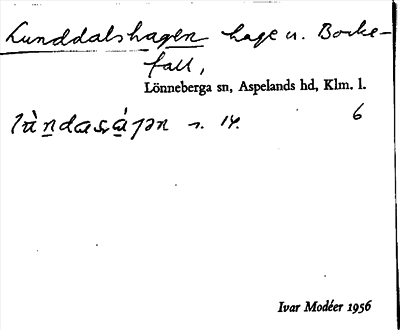 Lunddalshagen hage u. Bocke-
fall,
Lönneberga sn, Aspelands hd, Klm. l.
6
Ivar Modéer 1956